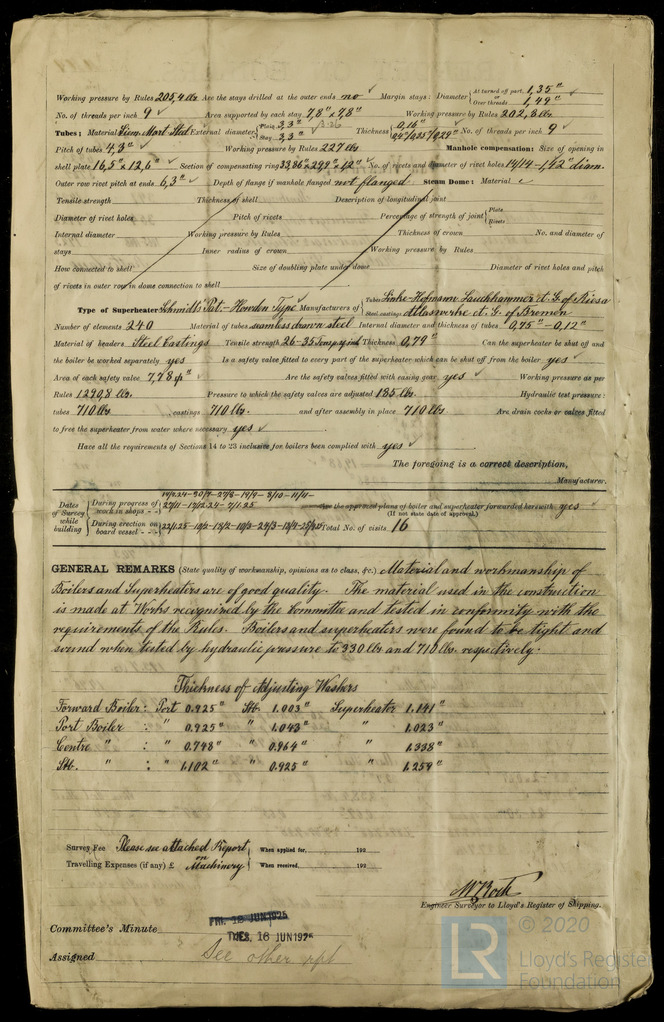 Working pressure by Rules 205,4 lbs Are the stays drilled at the outer ends no Margin stays: Diameter { At turned off part, 1,35" or Over threads 1,49"
No. of threads per inch 9 Area supported by each stay 7,8" x 7,8" Working pressure by Rules 202,8 lbs
Tubes: Material Siem. Mart. Steel External diameter { Plain 3,3" Stay 3,3" Thickness { 0,16" No. of threads per inch 9
Pitch of tubes 4,3" Working pressure by Rules 227 lbs Manhole compensation: Size of opening in
shell plate 16,5" x 12,6" Section of compensating ring No. of rivets and diameter of rivet holes 14/14 - 1,42" diam.
Outer row rivet pitch at ends 6,3" Depth of flange if manhole flanged not flanged. Steam Dome: Material
Tensile strength Thickness of shell Description of longitudinal joint
Diameter of rivet holes Pitch of rivets Percentage of strength of joint { Plate Rivets
Internal diameter Working pressure by Rules Thickness of crown No. and diameter of
stays Inner radius of crown Working pressure by Rules
How connected to shell Size of doubling plate under dome Diameter of rivet holes and pitch
of rivets in outer row in dome connection to shell
Type of Superheater Schmidt's Pat - Howden Type Manufacturers of { Tubes Linke-Hofmann Lauchhammer A.G. of Riesa Steel castings Atlaswerke A.G. of Bremen
Number of elements 240 Material of tubes seamless drawn steel Internal diameter and thickness of tubes 0,75" - 0,12"
Material of headers Steel Castings Tensile strength 26-35 Tons p sq inch Thickness 0,79" Can the superheater be shut off and
the boiler be worked separately yes Is a safety valve fitted to every part of the superheater which can be shut off from the boiler yes
Area of each safety valve 7,78 Are the safety valves fitted with easing gear yes Working pressure as per
Rules 1290,8 lbs. Pressure to which the safety valves are adjusted 185 lbs. Hydraulic test pressure:
tubes 710 lbs. castings 710 lbs. and after assembly in place 710 lbs. Are drain cocks or valves fitted
to free the superheater from water where necessary yes
Have all the requirements of Sections 14 to 23 inclusive for boilers been complied with yes
The foregoing is a correct description,
Manufacturer.
Dates of Survey while building { During progress of work in shops - - 19/2.24 - 30/7 - 27/8 - 19/9 - 8/10 - 11/11 - 27/11 - 17/12.24 - 7/1.25 Are the approved plans of boiler and superheater forwarded herewith yes
(If not state date of approval.)
During erection on board vessel - - - Total No. of visits 16
GENERAL REMARKS (State quality of workmanship, opinions as to class, &c.) Material and workmanship of
Boilers and Superheaters are of good quality. The material used in the construction
is made at Works recognized by the Committee and tested in conformity with the
requirements of the Rules. Boilers and superheaters were found to be tight and
sound when tested by hydraulic pressure to 330 lbs and 710 lbs. respectively.
Thickness of Adjusting Washers
Forward Boiler: Port 0.925" Stb. 1.003" Superheater 1.141"
Port Boiler : " 0.925" " 1.043" " 1.023"
Centre " : " 0.748" " 0.964" " 1.338"
Stb. " : " 1.102" " 0.925" " 1.259"
Survey Fee Please see attached Report When applied for, 192
Travelling Expenses (if any) £ on Machinery When received, 192
Engineer Surveyor to Lloyd's Register of Shipping.
Committee's Minute FRI. 12 JUN 1925
TUES. 16 JUN 1925
Assigned See other rpt
© 2020
LR Lloyd's Register
Foundation